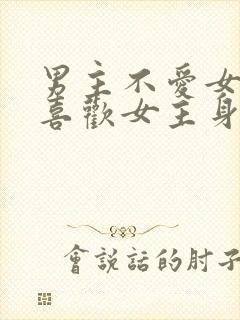 男主不愛女
喜歡女主身
會說話的肘子